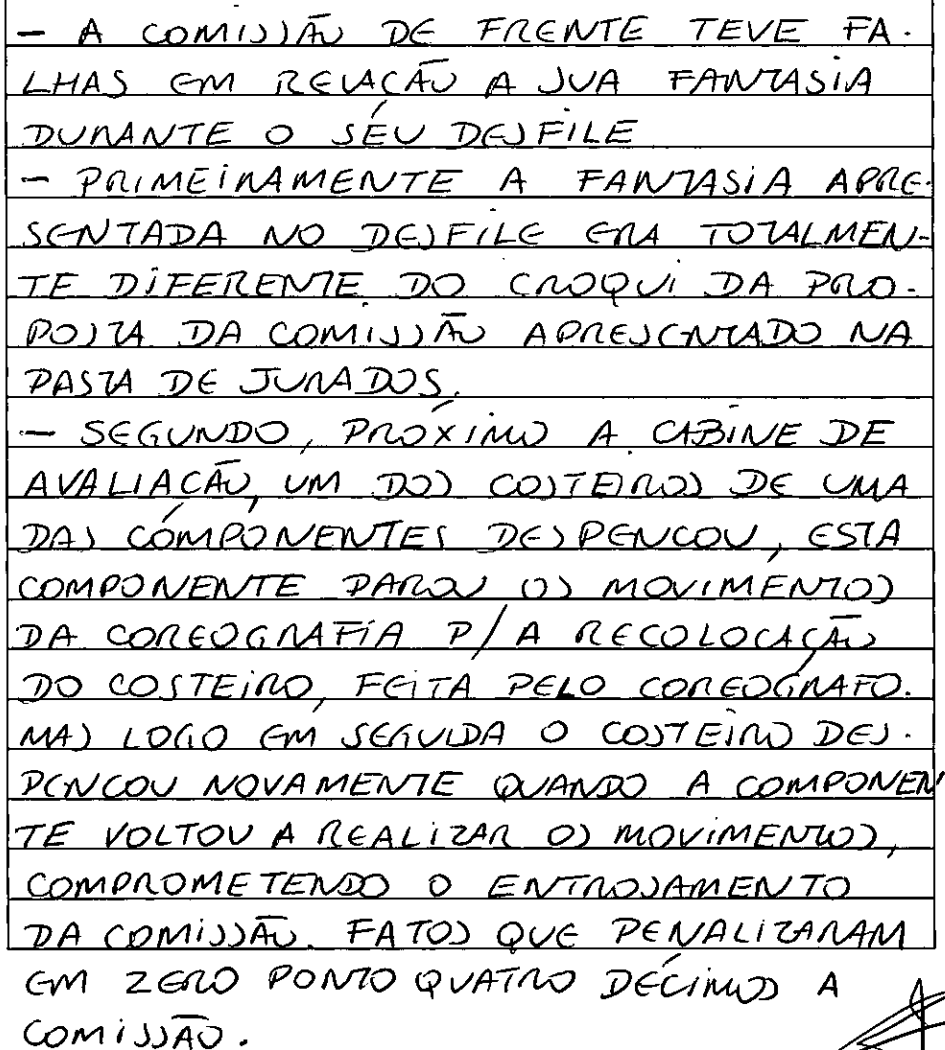 - A COMISSÃO DE FRENTE TEVE FA-
LHAS EM RELAÇÃO A SUA FANTASIA
DURANTE O SEU DESFILE
- PRIMEIRAMENTE A FANTASIA APRE-
SENTADA NO DESFILE ERA TOTALMEN-
TE DIFERENTE DO CROQUI DA PRO-
POSTA DA COMISSÃO APRESENTADO NA
PASTA DE JURADOS.
- SEGUNDO, PRÓXIMO A CABINE DE
AVALIAÇÃO, UM DOS COSTEIROS DE UMA
DAS COMPONENTES DESPENCOU, ESTA
COMPONENTE PAROU OS MOVIMENTOS
DA COREOGRAFIA P/ A RECOLOCAÇÃO
DO COSTEIRO, FEITA PELO COREÓGRAFO.
MAS LOGO EM SEGUIDA O COSTEIRO DES-
PENCOU NOVAMENTE QUANDO A COMPONEN
TE VOLTOU A REALIZAR OS MOVIMENTOS,
COMPROMETENDO O ENTROSAMENTO
DA COMISSÃO. FATOS QUE PENALIZARAM
EM ZERO PONTO QUATRO DÉCIMOS A
COMISSÃO.